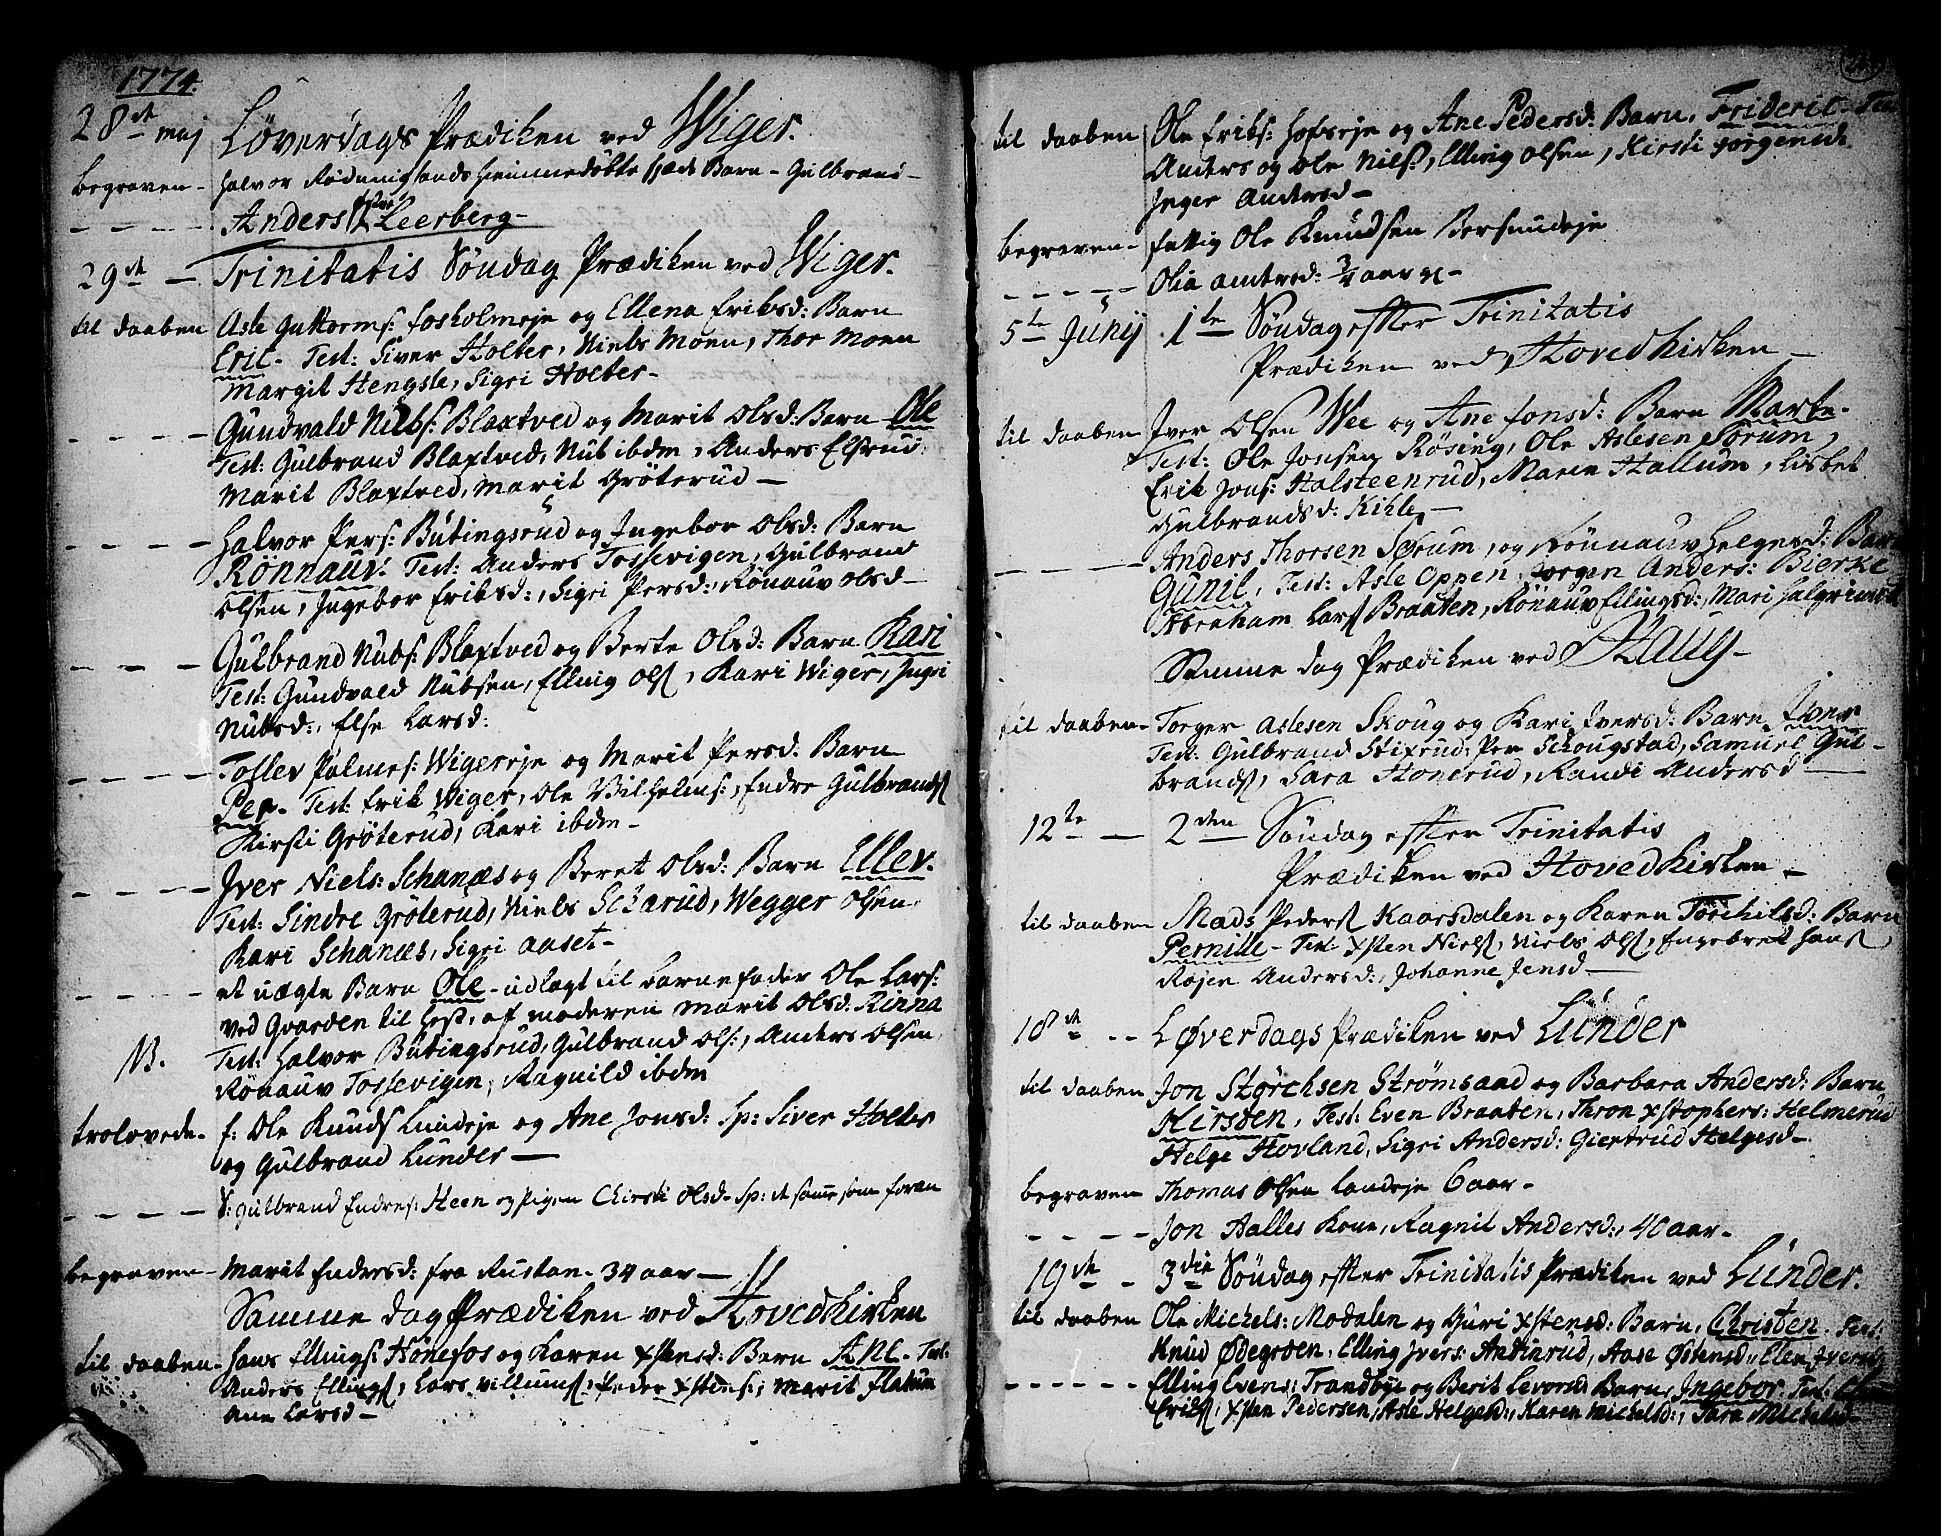 1774.
28de maj Løverdags Prædiken ved Wiger.
begraven - Halvor Rødningsands hiemmedøbte Barn - Gulbrand -
- - - - Anders Leerberg -
29de - Trinitatis Søndag Prædiken ved Wiger.
til daaben Asle Guttorms: foskolmeje og Ellena Eriksd: Barn
Eric - Test: Siver Holter, Niels Moen, Thor Moen
Margit Hengsle, Sigri Holter -
- - - - Gundvald Nubs: Blaxtved og Marit Olsd: Barn Ole
Test: Gulbrand Blaxtved, Nub ibdm, Anders Elsrud,
Marit Blaxtved, Marit Gröterud -
- - - - Halvor Pers: Bütingsrud og Ingebor Olsd: Barn
Rönnauv. Test: Anders Tossevigen, Gulbrand
Olsen, Ingebor Eriksd:, Sigri Persd:, Rönauv Olsd -
- - - - Gulbrand Nubs: Blaxtved og Berte Olsd: Barn Kari
Test: Gundvald Nubsen, Elling Ols, Kari Wiger, Ingri
Nubsd:, Else Larsd:
- - - - Tollev Palmes: Wigereje og Marit Persd: Barn
Per - Test: Erik Wiger, Ole Vilhelms:, Endre Gulbrands
Kirsti Gröterud, Kari ibdm -
- - - - Iver Niels: Schanæs og Beret Olsd: Barn Ellev.
Test: Sindre Gröterud, Niels Scharud, Wegger Olsen,
Kari Schanæs, Sigri Aaset -
- - - - et uægte Barn Ole - udlagt til barnefader Ole Lars:
ved Gvarden til Hest, af moderen Marit Olsd: Rinna
NB. Test: Halvor Bütingsrud, Gulbrand Ols:, Anders Olsen,
Rönauv Tossevigen, Ragnild ibdm
trolovede - f: Ole Knuds Lundeje og Ane Jonsd: Sp: Siver Holter
og Gulbrand Lunder -
- - - - S: Gulbrand Endres: Heen og pigen Chirsti Olsd - Sp: de samme som foran
begraven - Marit Endersd: fra Rustan - 34 aar -
Samme dag Prædiken ved Hovedkirken
til daaben - Hans Ellings: Hönefos og Karen Xstensd: Barn Ane - Test:
Anders Ellings, Lars Villums, Peder Xstens:, Marit Flakum
Ane Larsd -
til daaben Ole Eriks: Hofseje og Ane Pedersd: Barn, Frideric - Test
Anders og Ole Niels:, Elling Olsen, Kirsti Jörgensd:
Inger Andersd -
begraven - fattig Ole Knudsen Bersundeje
- - - - - Olia Andersd: 3/4 aar gl -
5te Junij 1te Søndag efter Trinitatis
Prædiken ved Hovedkirken -
til daaben Iver Olsen Wee og Ane Jonsd: Barn Marte -
Test: Ole Jonsen Røsing, Ole Aslesen Sørum,
Erik Jons: Halsteenrud, Maren Hallum, Lisbet
Gulbrandsd: Kihle, -
- - - - - Anders Thorsen Sørum, og Rönnauv Helgesd: Barn
Gunil, Test: Asle Oppen, Jorgen Anders: Bierke
Abraham Lars Braaten, Rönauv Ellingsd:, Mari Halgrimsd:
Samme dag Prædiken ved Haug -
til daaben - Torger Aslesen Skoug og Kari Iversd: Barn Iver
Test: Gulbrand Stixrud, Per Schougstad, Samuel Gul-
brands, Sara Honerud, Randi Andersd -
12te - 2den Søndag efter Trinitatis
Prædiken ved Hovedkirken -
til daaben Mads Peders Kaarsdalen og Karen Torchilsd: Barn
Pernille - Test: Xsten Niels, Niels Ols, Engebret Hans,
Rojer Anders:, Johanne Jensd -
18de - - Løverdags Prædiken ved Lünder
til daaben Jon Størchsen Strømsaad og Barbara Andersd: Barn
Kirsten, Test: Even Braaten, Thron Xstophers: Helmerud
Helge Hovland, Sigri Andersd: Giertrud Helgesd -
begraven Thomas Olsen Landeje 6 aar -
- - - - Jon Halles Kone, Ragnil Andersd:, 40 aar -
19de - 3die Søndag efter Trinitatis Prædiken ved Lünder.
til daaben Ole Michels: Modalen og Guri Xstensd: Barn, Christen - Test:
Knud Ødegrden, Elling Ivers: Andinrud, Aase Østensd:, Elen Iversd:
- - - - - - Elling Evens: Trandbye og Berit Levorsd Barn, Ingebor. Test:
Eriks, Xsten Pedersen, Asle Helges:, Karen Michelsd:, Sara Michelsd -